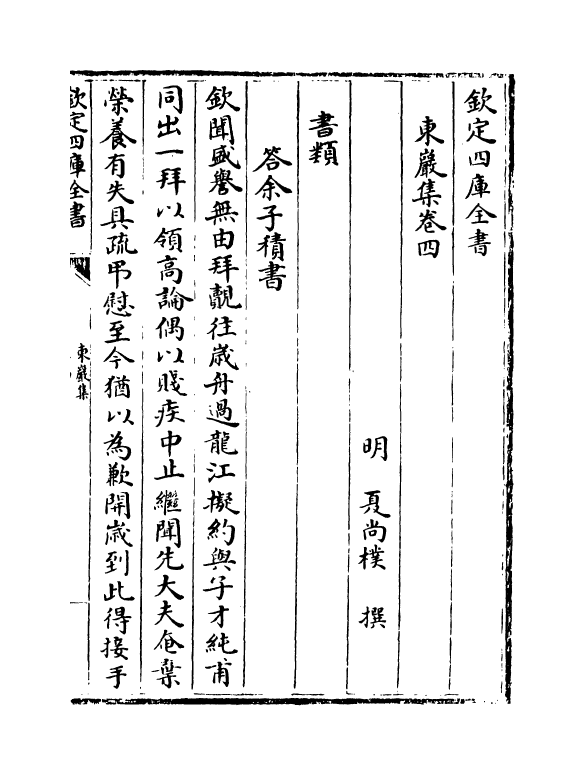 欽定四庫全書
東巖集卷四
明 夏尚樸 撰
書類
答余子積書
欽聞盛譽無由拜覿往歲舟過龍江擬約與子才純甫
同出一拜以領高論偶以賤疾中止繼聞先大夫奄棄
榮養有失具疏弔慰至今猶以為歉開歲到此得接手
欽定四庫全書
東巖集